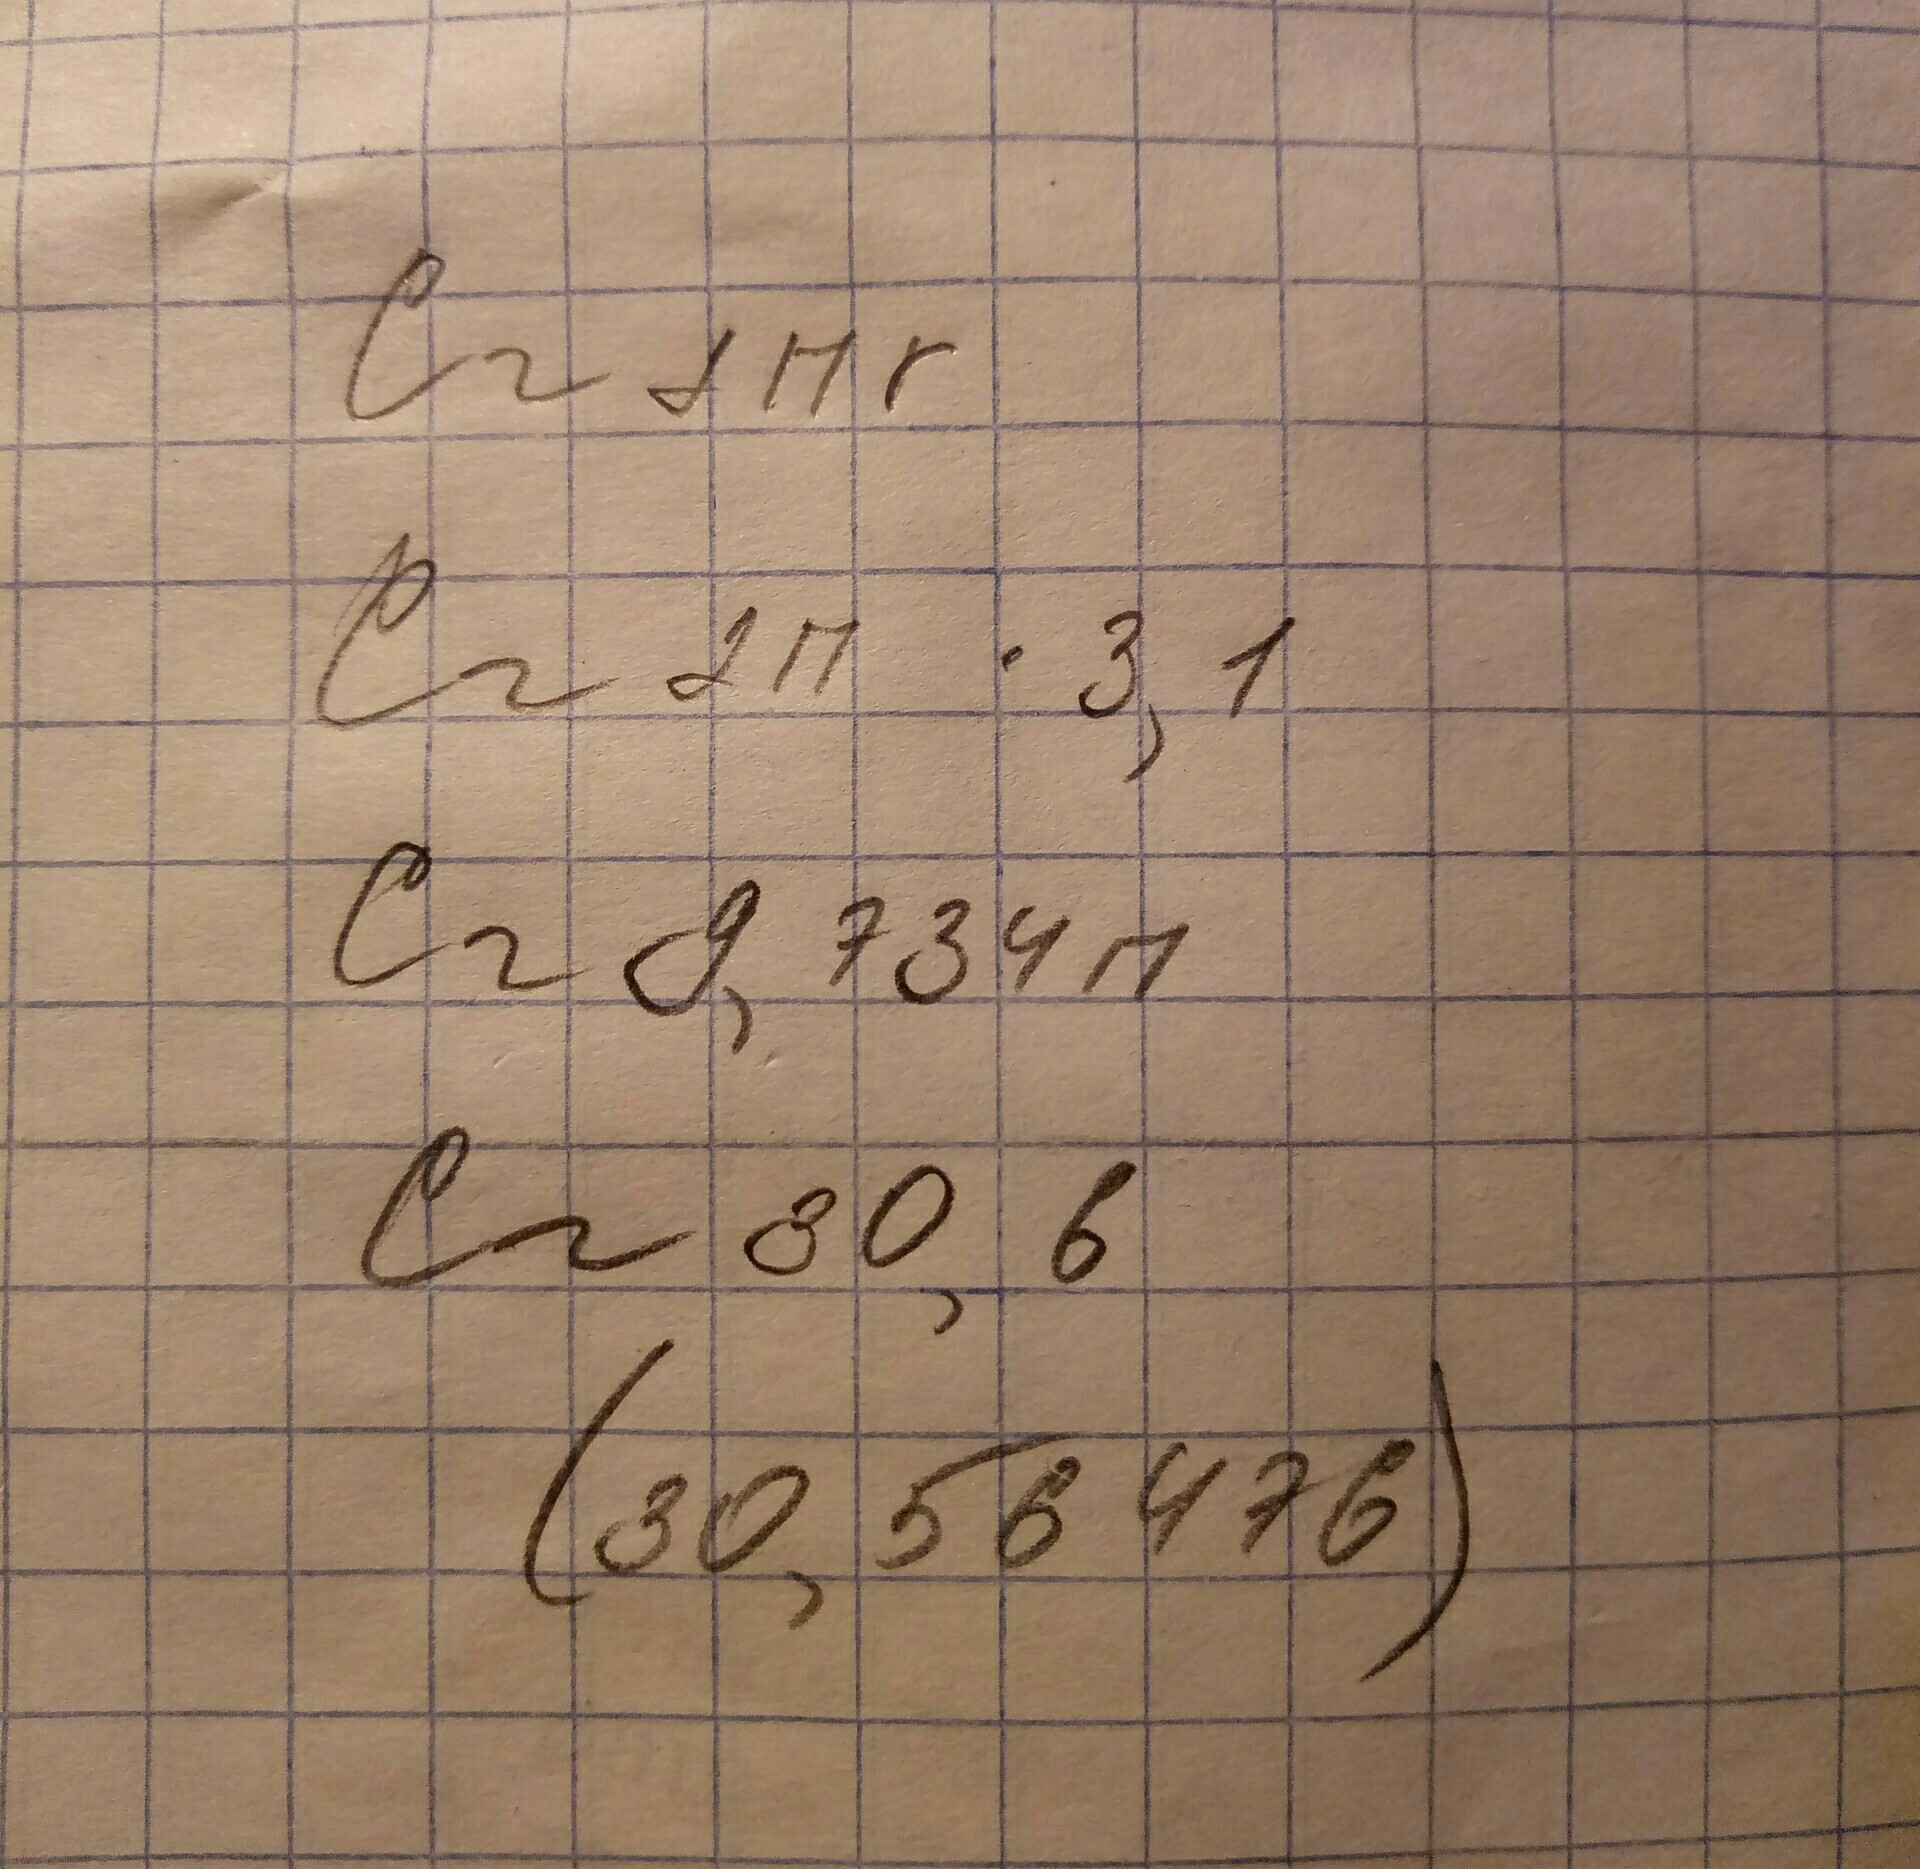 C = 2πr
C = 2π · 3,1
C = 9,734π
C = 30,6
(30,56476)